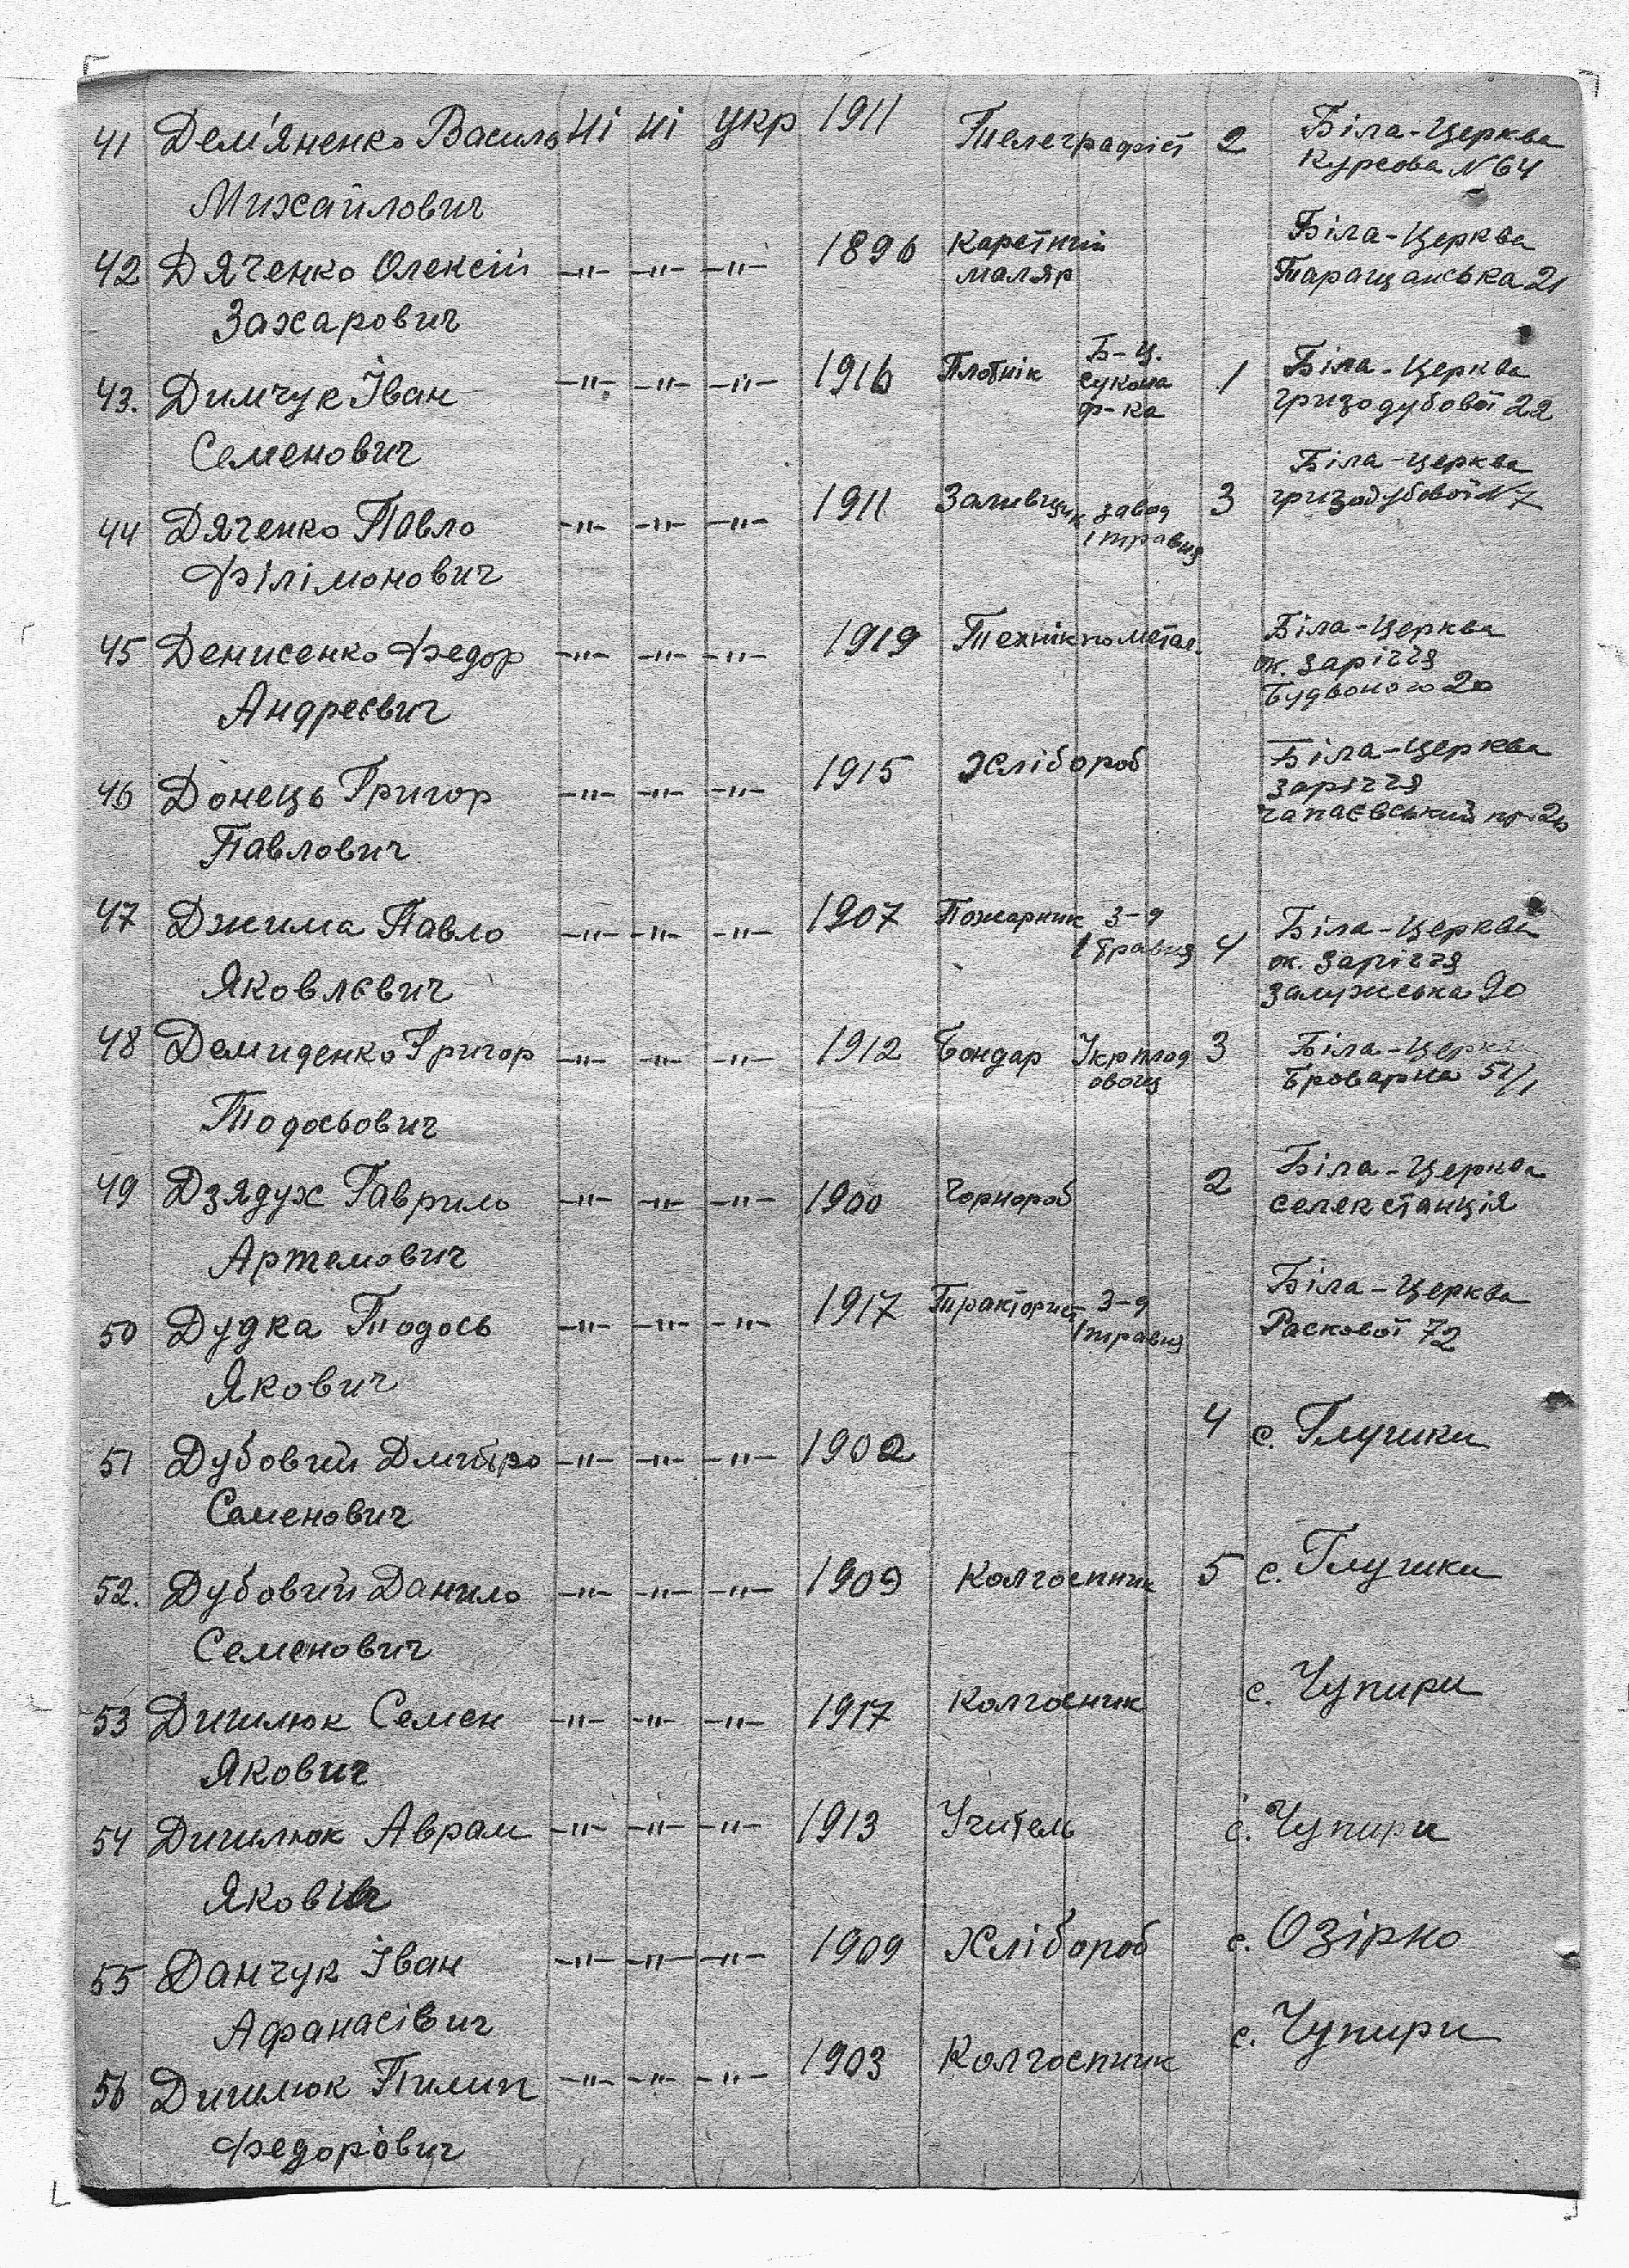 41 Дем'яненко Василь ні ні укр 1911 Телеграфіст 2 Біла-Церква
Курсова N 64
Михайлович
42 Дяченко Олексій —"— —"— —"— 1896 Каретний маляр Біла-Церква
Таращанська 21
Захарович
43. Димчук Іван —"— —"— —"— 1916 Плотнік Б-Ц. сукона ф-ка 1 Біла-Церква
гризодубової 22
Семенович
44 Дяченко Павло —"— —"— —"— 1911 Заливщик завод 1 травня 3 Біла-Церква
гризодубової N 7
Філімонович
45 Денисенко Федор —"— —"— —"— 1919 Технік по метал. Біла-Церква
ок. заріччя
20
Андреєвич
46 Донець Григор —"— —"— —"— 1915 Хлібороб Біла-Церква
заріччя
чапаєвський
Павлович
47 Джима Павло —"— —"— —"— 1907 Пожарник З-д 1 травня 4 Біла-Церква
ок. заріччя
90
Яковлєвич
48 Демиденко Григор —"— —"— —"— 1912 Бондар Укрплод овощ 3 Біла-Церква
Броварна 51/1
Тодосьович
49 Дзядух Гаврило —"— —"— —"— 1900 Чорнороб 2 Біла-Церква
селекстанція
Артемович
50 Дудка Тодось —"— —"— —"— 1917 Тракторист З-д 1 травня Біла-Церква
Раскової 72
Якович
51 Дубовий Дмитро —"— —"— —"— 1902 4 с. Глушки
Семенович
52. Дубовий Данило —"— —"— —"— 1909 Колгоспник 5 с. Глушки
Семенович
53 Дишлюк Семен —"— —"— —"— 1917 Колгосник с. Чупири
Якович
54 Дишлюк Аврам —"— —"— —"— 1913 Учитель с. Чупири
55 Данчук Іван —"— —"— —"— 1909 Хлібороб с. Озірно
Афанасівич
56 Дишлюк Пилип —"— —"— —"— 1903 Колгоспник с. Чупири
Федорович